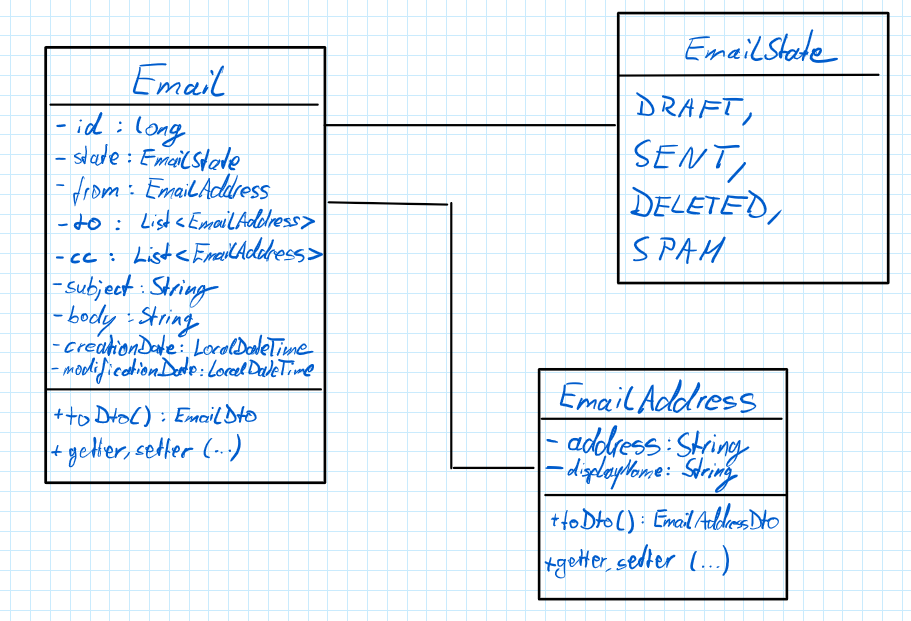 Email
- id : long
- state : EmailState
- from : EmailAddress
- to : List<EmailAddress>
- cc : List<EmailAddress>
- subject : String
- body : String
- creationDate : LocalDateTime
- modificationDate : LocalDateTime
+ toDto() : EmailDto
+ getter, setter (...)
EmailState
DRAFT,
SENT,
DELETED,
SPAM
EmailAddress
- address : String
- displayName : String
+ toDto() : EmailAddressDto
+ getter, setter (...)